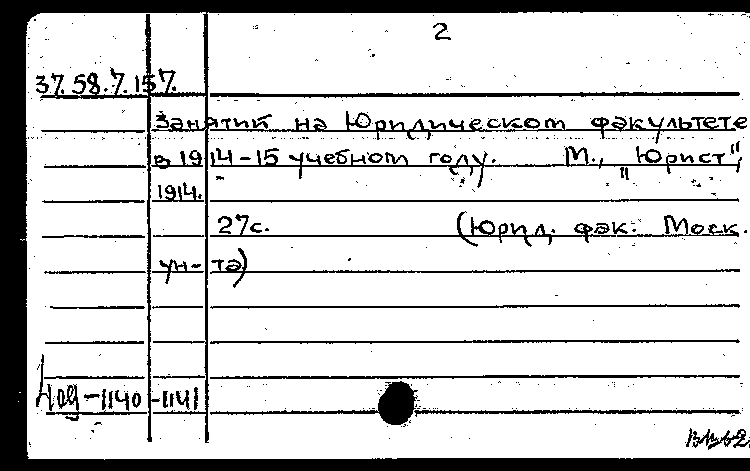 2
37.58.7.157.
Занятия на Юридическом факультете
в 1914-15 учебном году. М., "Юрист",
1914.
27с. (Юрид. фак. Моск.
ун-та)
-1140-1141